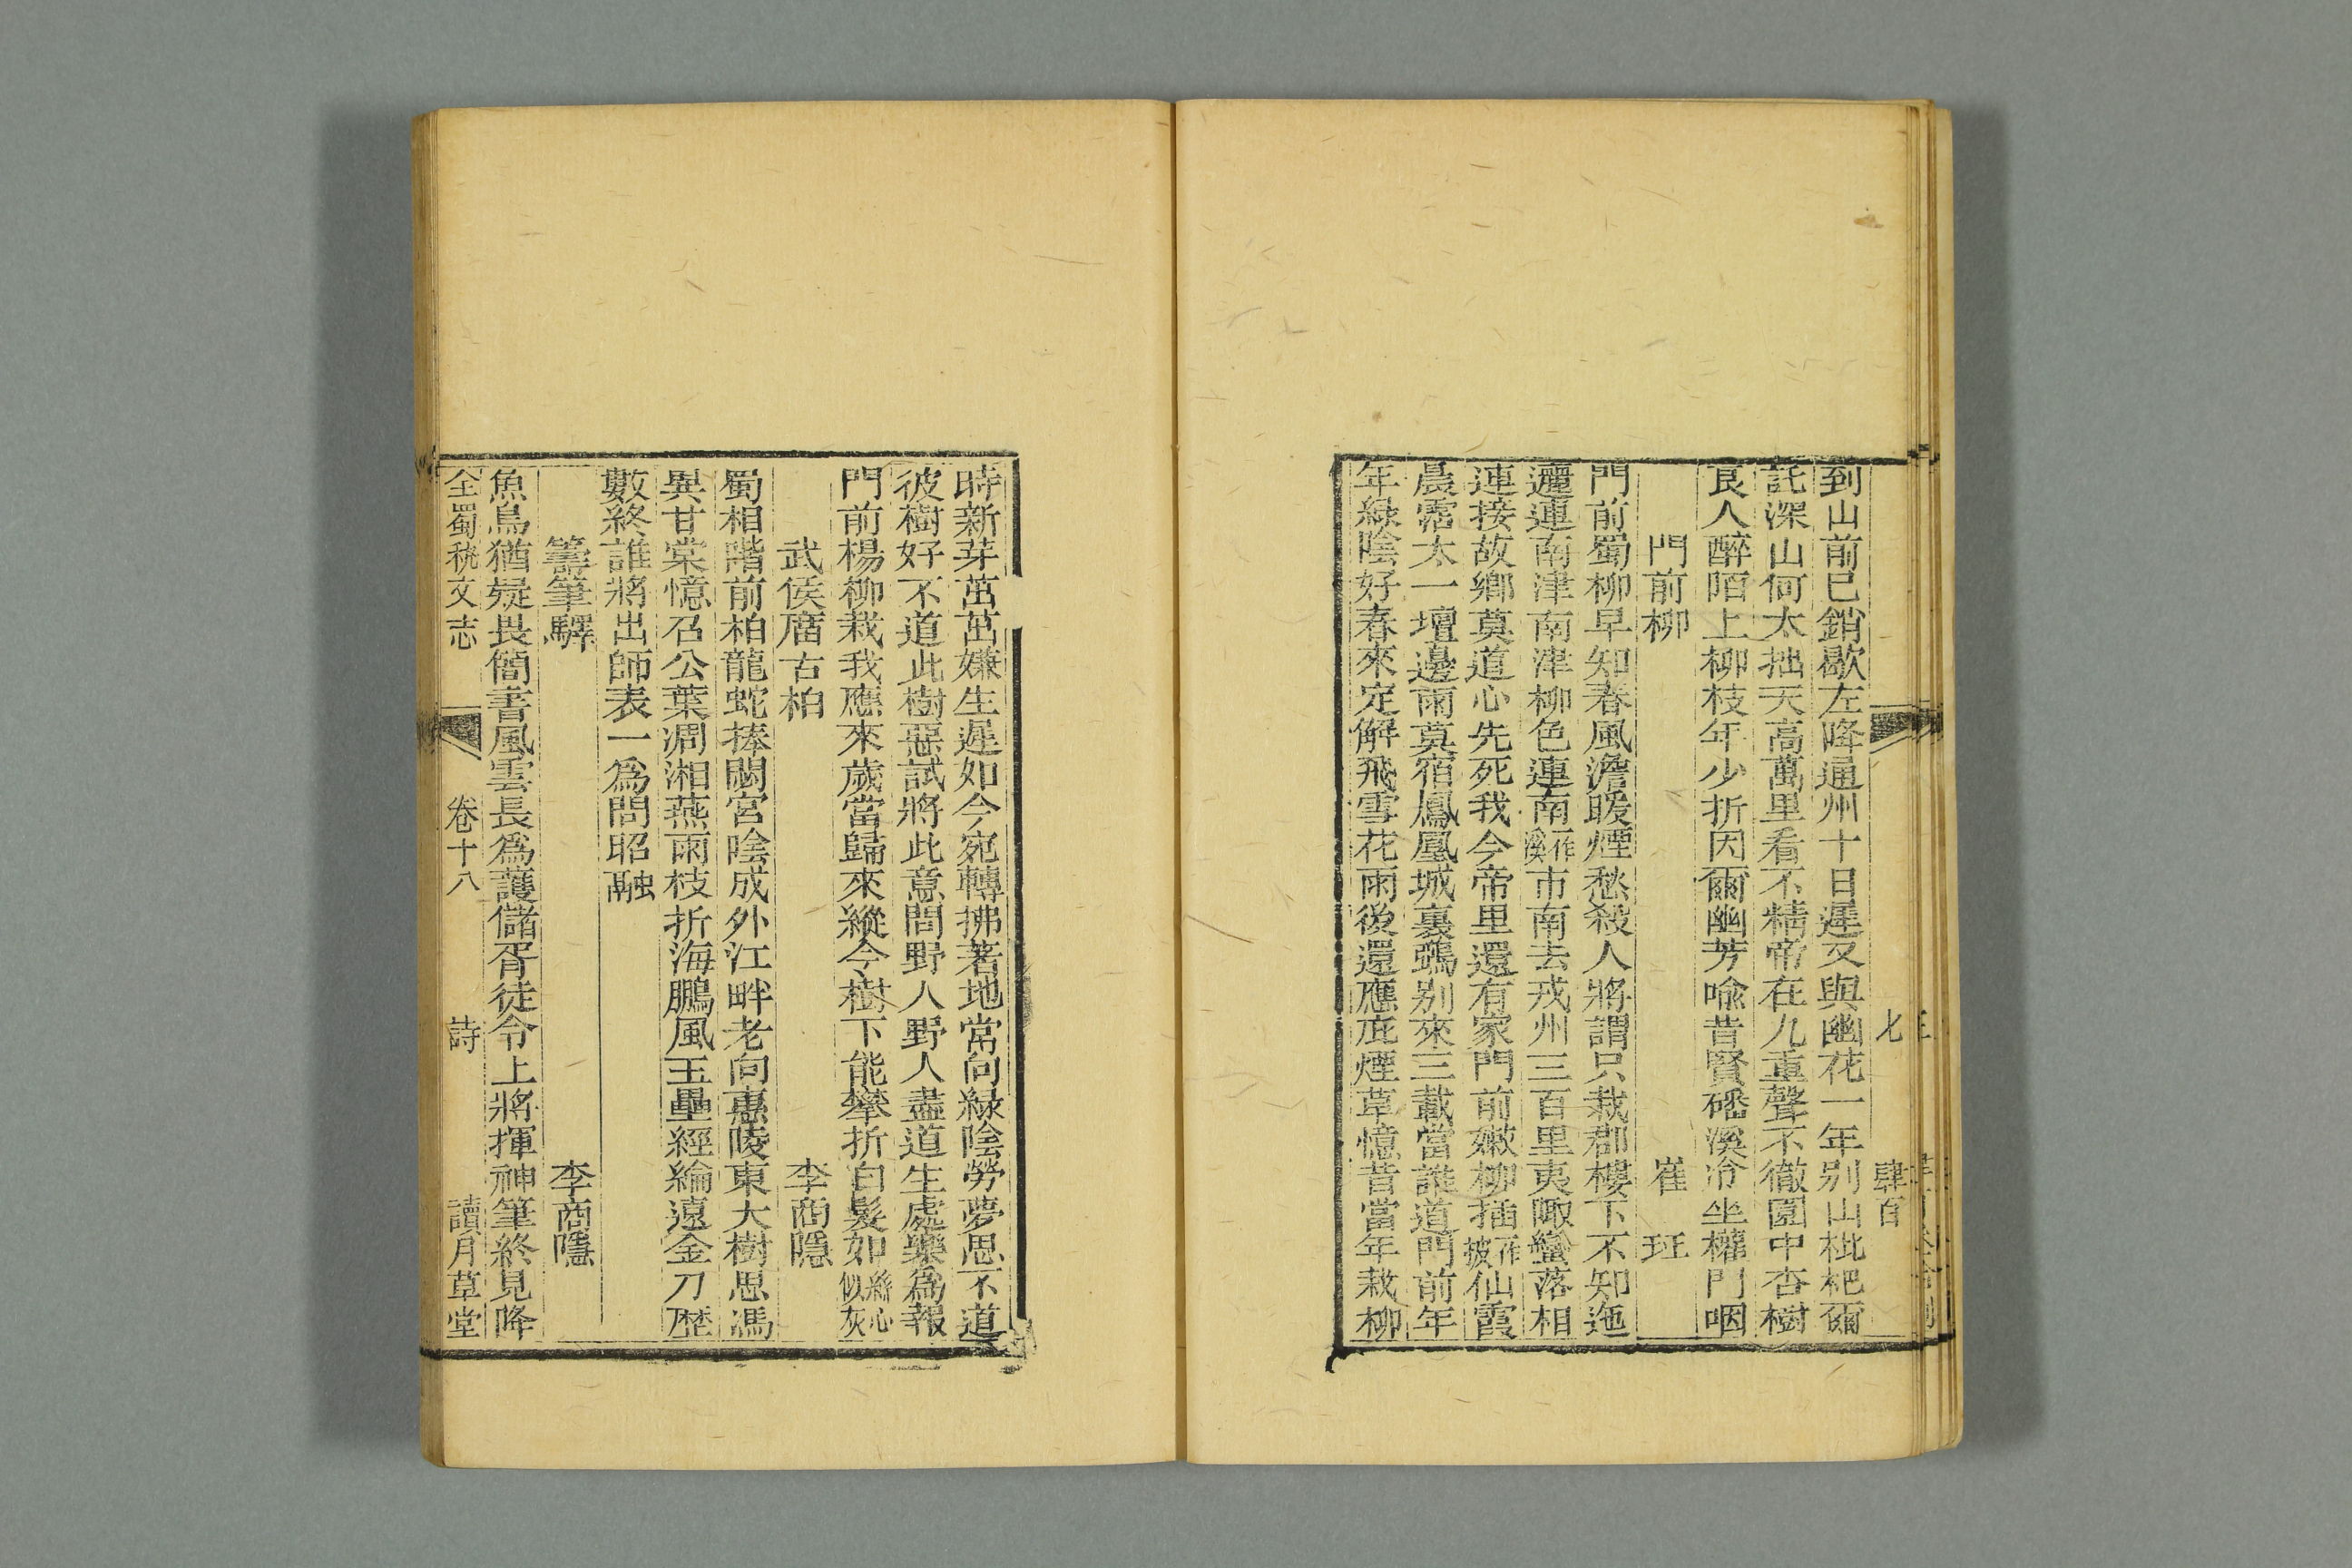 七 肆百
到山前已銷歇左降通州十日遲又與幽花一年别山枇杷爾
託深山何太拙天高萬里看不精帝在九重聲不徹園中杏樹
良人醉陌上柳枝年少折因爾幽芳喻昔賢磻溪冷坐權門咽
門前柳 崔 玨
門前蜀柳早知春風澹暖煙愁殺人將謂只栽郡樓下不知迤
邐連南津南津柳色連南一作溪市南去戎州三百里夷陬蠻落相
連接故鄉莫道心先死我今帝里還有家門前嫩柳插一作披仙霞
晨霑太一壇邊雨莫宿鳳凰城裏鵶别來三載當誰道門前年
年綠陰好春來定解飛雪花雨後還應庇煙草憶昔當年栽柳
時新芽茁茁嫌生遲如今宛轉拂著地常向緑陰勞夢思不道
彼樹好不道此樹惡試將此意問野人野人盡道生處樂爲報
門前楊柳栽我應來歲當歸來縱今樹下能攀折白髮如絲心似灰
武侯廟古柏 李商隱
蜀相階前柏龍蛇捧閟宮陰成外江畔老向惠陵東大樹思馮
異甘棠憶召公葉凋湘燕雨枝折海鵬風玉壘經綸遠金刀歷
數終誰將出師表一爲問昭融
籌筆驛 李商隱
魚鳥猶疑畏簡書風雲長爲護儲胥徒令上將揮神筆終見降
全蜀秇文志 卷十八 詩 讀月草堂